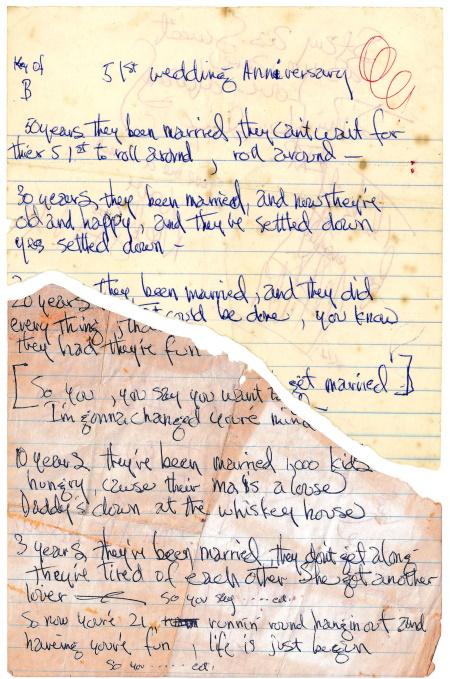 Key of
B
51st wedding Anniversary
50 years they been married, they can't wait for
thier 51st to roll around, roll around —
30 years, they been married, and now they're
old and happy, and they've settled down
yes settled down —
they been married, and they did
20 years
could be done, you know
every thing
they had they're fun
[ So you, you say you want to get married ]
I'm gonna changed you're mind
10 years they've been married 1,000 kids
hungry, cause their ma's a louse
Daddy's down at the whiskey house
3 years, they've been married, they don't get along
they're tired of each other She got another
lover
So you say ...... ed.
So now you're 21, runnin' round hangin out and
haveing you're fun, life is just begin
So you ...... ed.